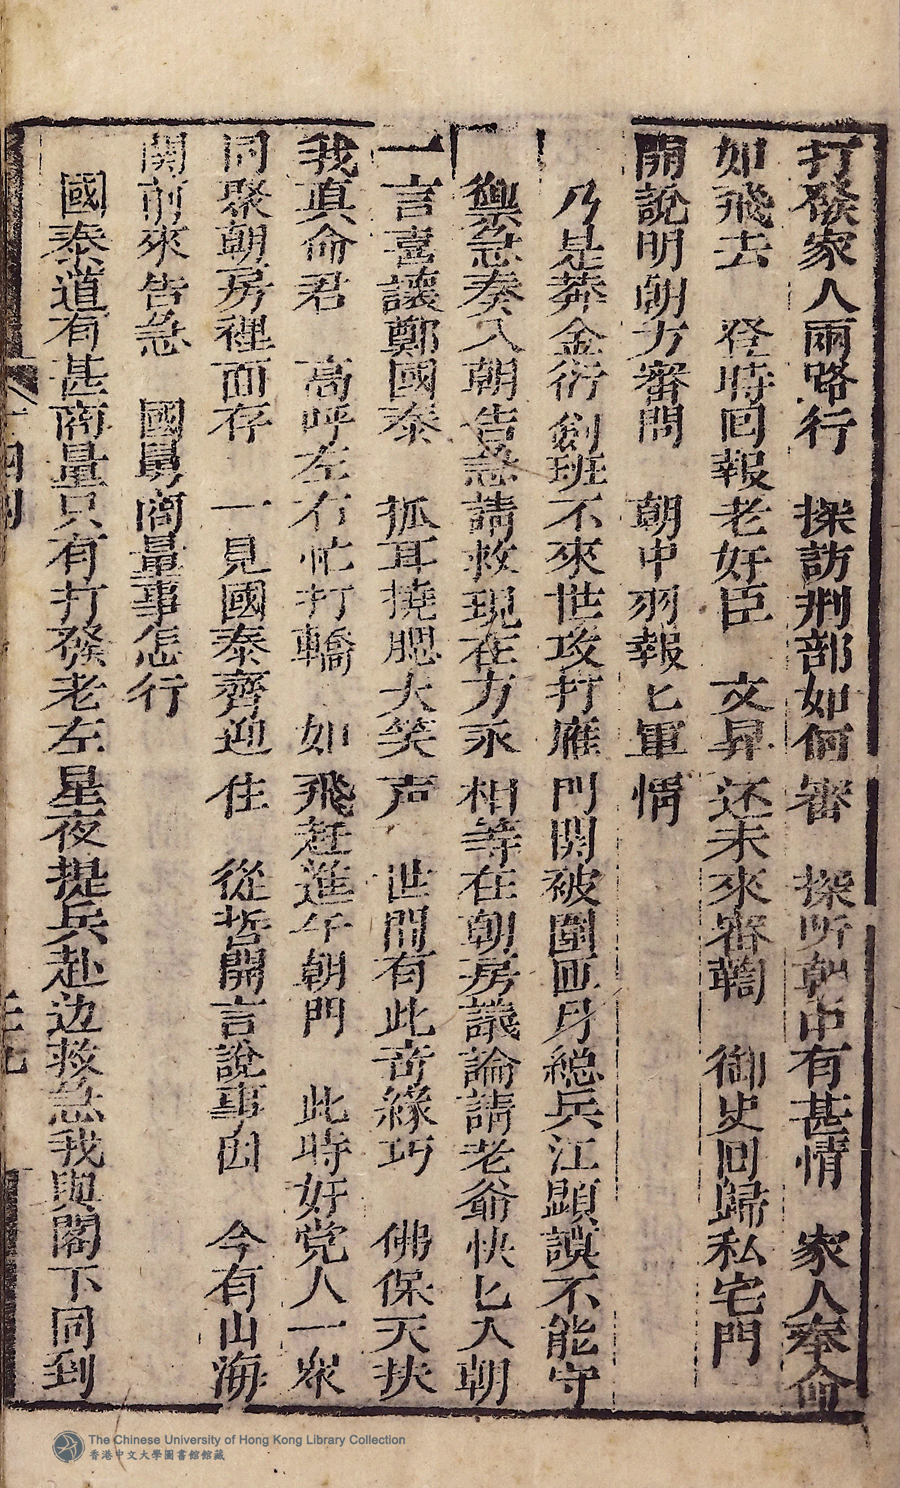 打發家人兩路行　探訪刑部如何審　探听朝中有甚情　家人奉命
如飛去　登時回報老奸臣　文昇还未來審鞫　御史回歸私宅門
開說明朝方審問　朝中羽報匕軍情
乃是莽金衍創班不來世攻打雁門関破圍困月總兵江顕謨不能守
禦忌奏入朝告急請救現在方永相等在朝房議論請老爺快匕入朝
一言喜讓鄭國泰　抓耳撓腮大笑声　世間有此奇緣巧　佛保天扶
我真命君　高呼左右忙打轎　如飛赶進午朝門　此時奸党人一眾
同聚朝房裡面存　一見國泰齊迎住　從哲開言說事因　今有山海
関前來告急　國舅商量事怎行
國泰道有甚商量只有打發老左星夜提兵赴边救急我與閣下同到
The Chinese University of Hong Kong Library Collection
香港中文大學圖書館館藏